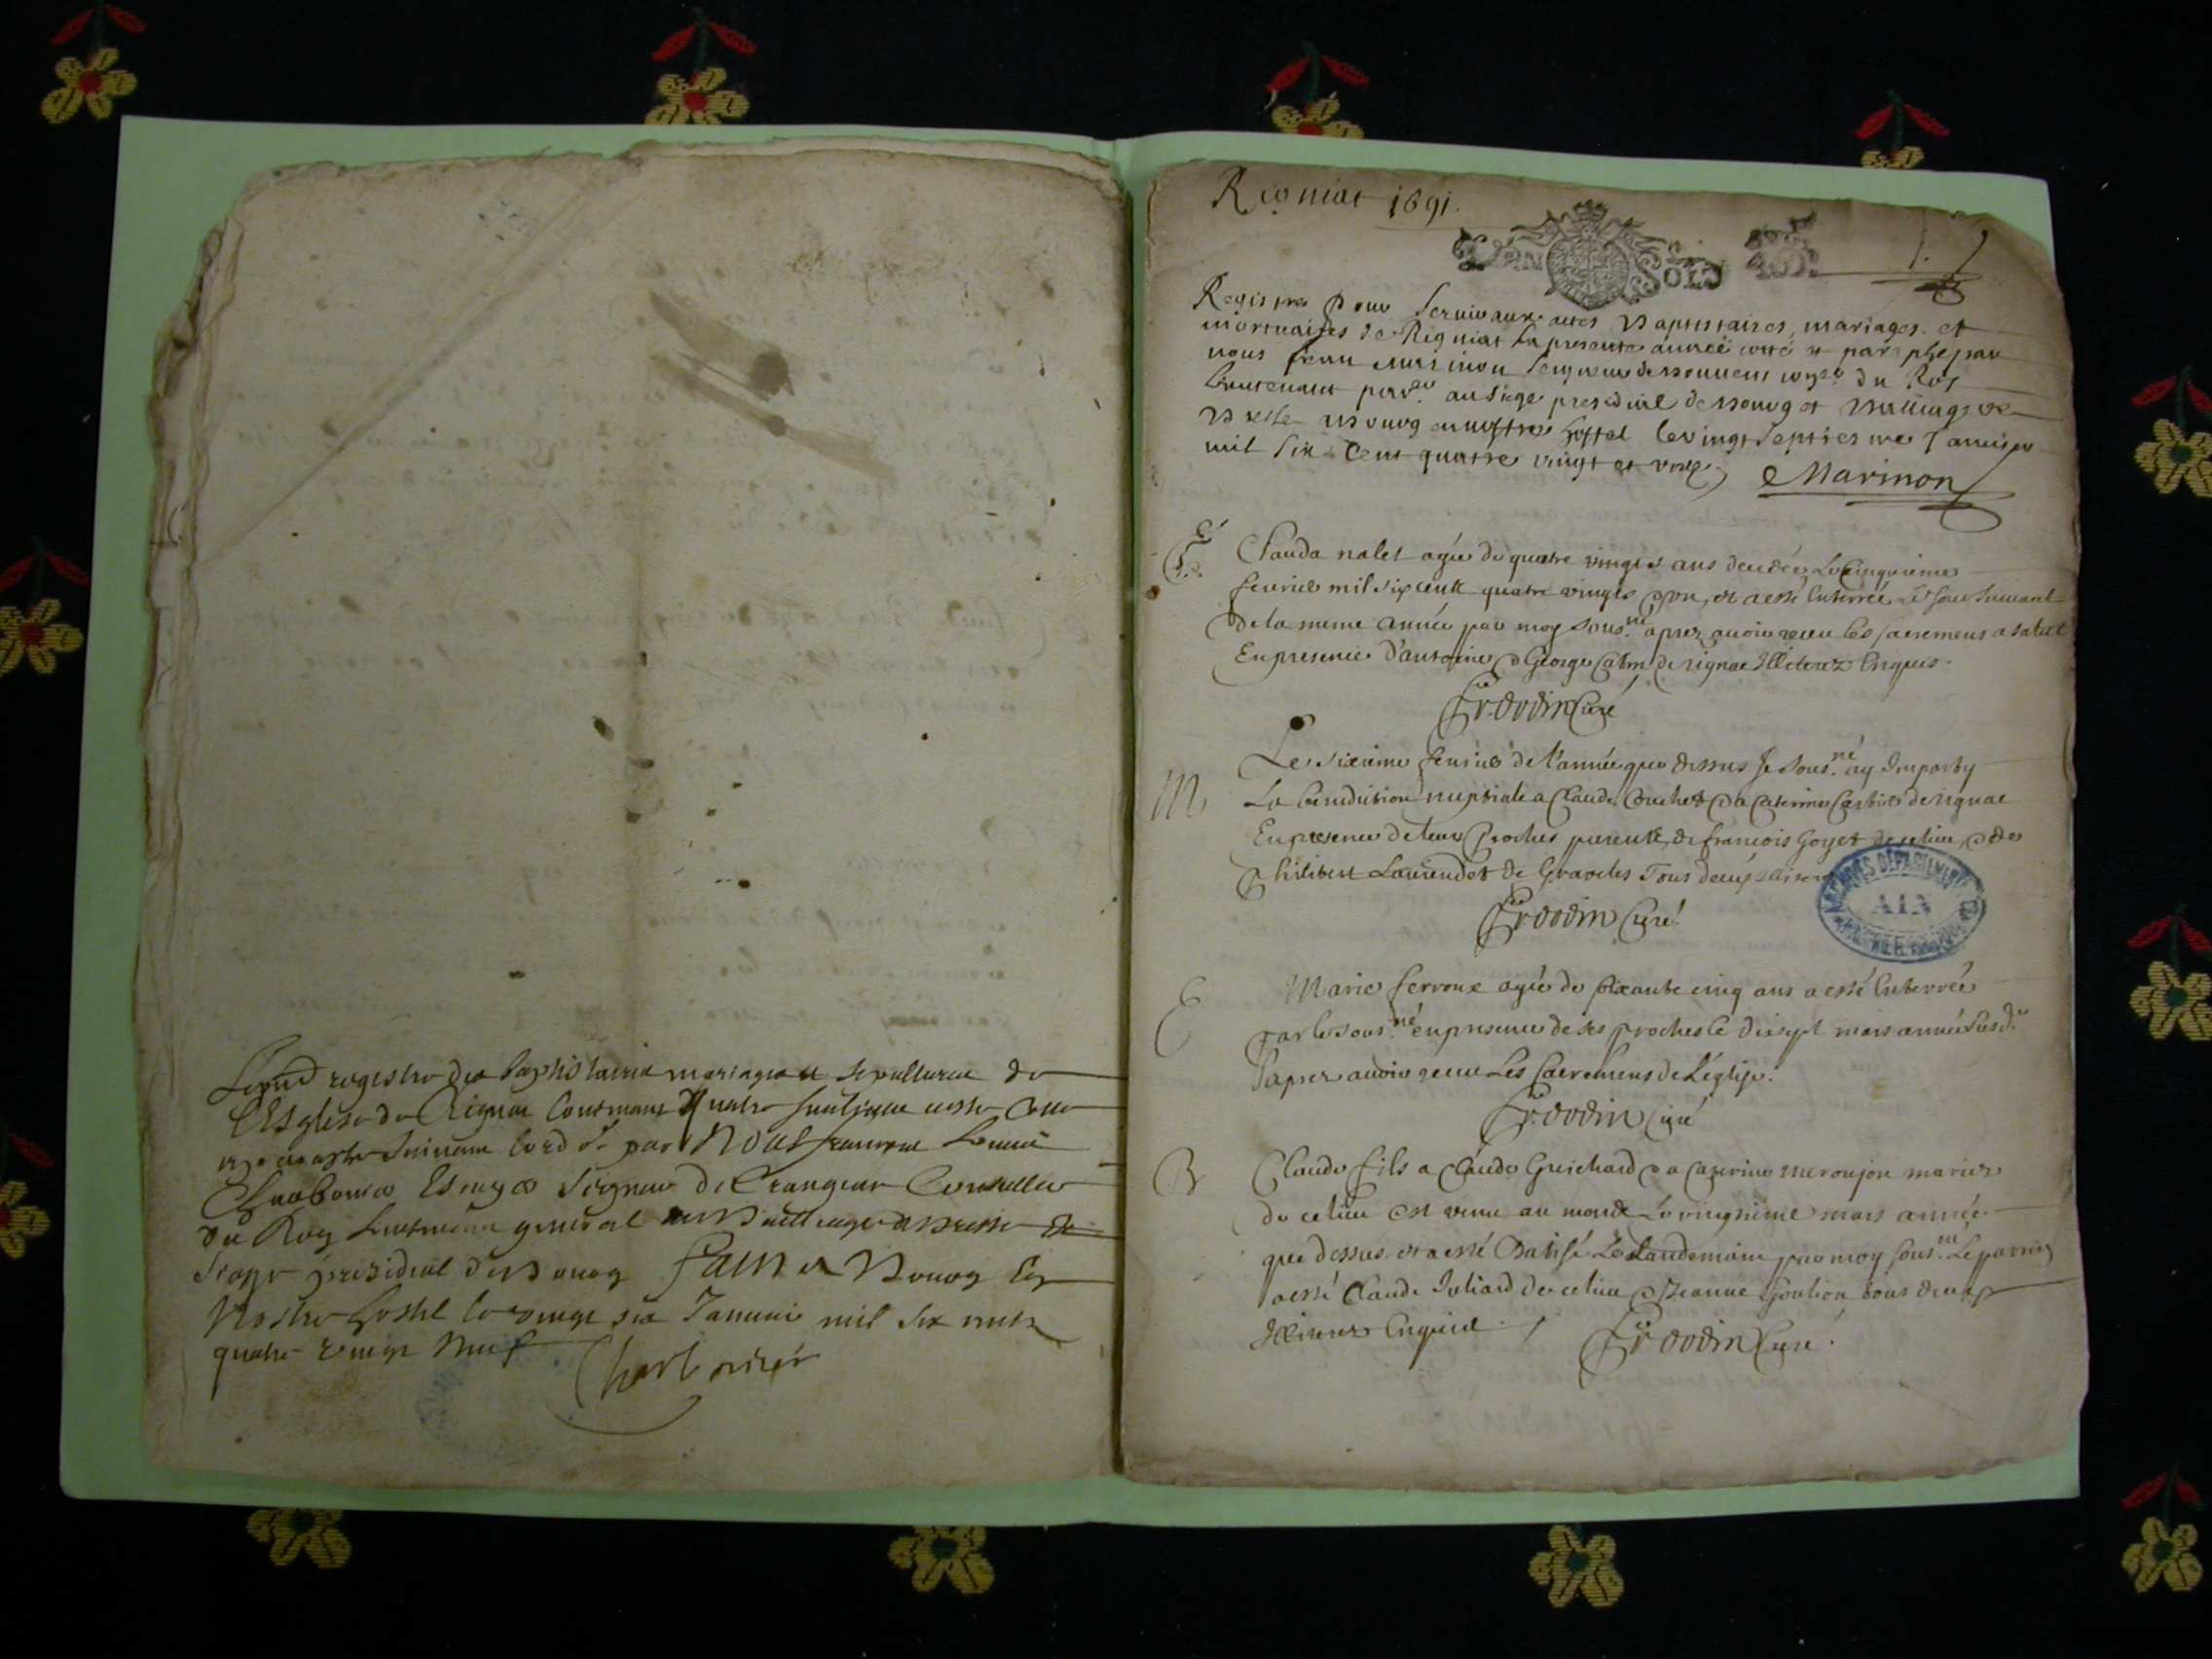 Le pnt registre des baptistaires mariages et sepultures de
l'Esglise de Rignat contenant quatre feuilliets
par Nous
Charbonnier Escuyer Seigneur de Crangeac Conseiller
du Roy Lieutenant general au Bailliage de Bresse et
siege presidial de Bourg fait a Bourg en
Nostre hostel le vingt six Janvier mil six cents
quatre vingt neuf
Charbonnier
Rigniat 1691.
DEN SOLS
Registre pour servir aux actes Baptistaires, mariages et
mortuaires de Rigniat la presente année cotté et paraphé par
nous Jean Marinon Seigneur de du Roy
Lieutenant au siege presidial de Bourg et Bailliage de
Bresse Bourg en nostre hostel le vingt septiesme Janvier
mil six Cent quatre vingt et onze
Marinon
E
Clauda nalet agée de quatre vingts ans decedée Le Cinquieme
feuvrier mil six cents quatre vingts et a esté Enterrée le jour suivant
de la meme année par moy sous.né aprez avoir receu les sacremens
En presence d'antoine & George de rignat Illiterez Enquis.
Fr. dodin Curé
M
Le sixieme feuvrier de l'année que dessus Je sous.né ay Imparty
La benediction nuptiale a Claude Couchet & a Caterine de rignat
En presence de leurs proches parents, de francois Goyet de ce lieu, & de
philibert Laurendet de Tous deux
Fr. dodin Curé
ARCHIVES DEPARTEMENTALES AIN
E
Marie ferroux agée de soixante cinq ans a esté Enterrée
par le sous.né en presence de ses proches le dixsept mars année susd.e
aprez avoir receu Les sacremens de L'église.
Fr. dodin Curé
B
Claude fils a Claude Guichard & a Caterine meroujon mariez
de ce lieu est venu au monde Le vingtième mars année
que dessus et a esté Batisé Le Landemain par moy sous.né Le parrin
a esté Claude Juliard de ce lieu & Jeanne Goulion tous deux
Illiterez Enquis.
Fr dodin Curé.